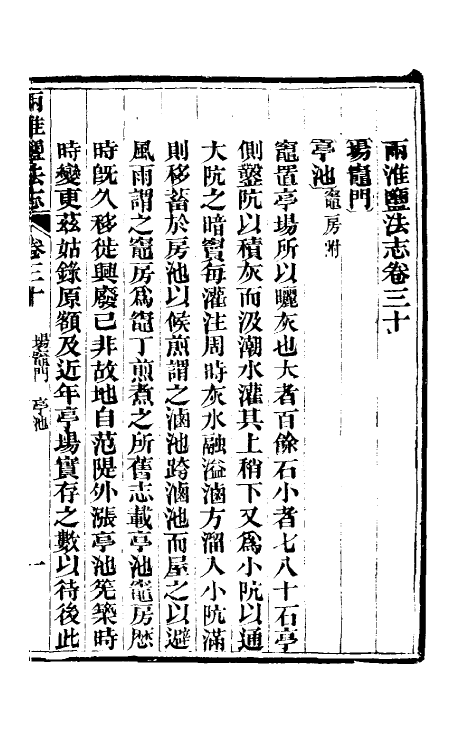 兩淮鹽法志卷三十
場竈門
亭池 竈房附
竈置亭場所以曬灰也大者百餘石小者七八十石亭
側鑿阬以積灰而汲潮水灌其上稍下又爲小阬以通
大阬之暗竇每灌注周時灰水融溢滷方溜入小阬滿
則移蓄於房池以候煎謂之滷池跨滷池而屋之以避
風雨謂之竈房爲竈丁煎煮之所舊志載亭池竈房懋
時旣久移徙興廢已非故地自范隄外漲亭池筅築時
時變東茲姑錄原額及近年亭場實存之數以待後此
兩淮鹽法志
卷三十
場竈門 亭池
一